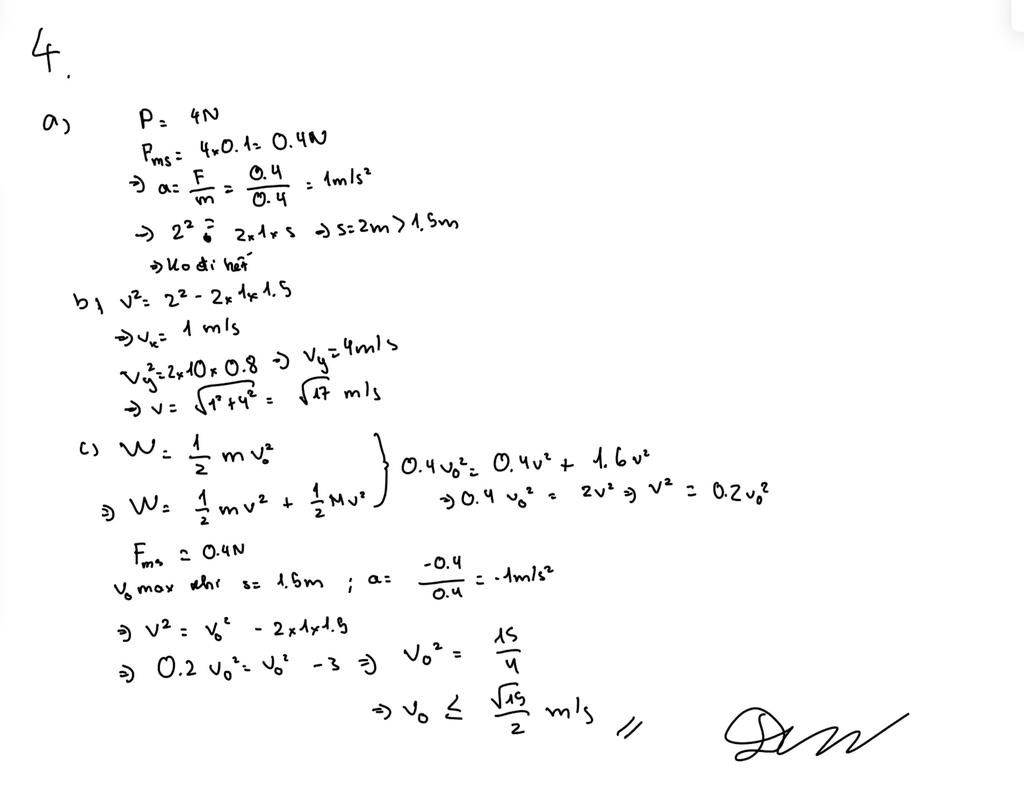 4.
a) P = 4N
Pms = 4x0.1 = 0.4N
=> a = F/m = 0.4/0.4 = 1m/s²
-> 2² = 2x1xs => s = 2m > 1.5m
=> Ko đi hết
b) v² = 2² - 2x1x1.5
=> vx = 1 m/s
Vy² = 2x10x0.8 => Vy = 4m/s
=> v = √(1²+4²) = √17 m/s
c) W = 1/2 m v₀² } 0.4v₀² = 0.4v² + 1.6v²
=> W = 1/2 mv² + 1/2 Mv² => 0.4 v₀² = 2v² => v² = 0.2v₀²
Fms = 0.4N
v₀ max khi s = 1.5m ; a = -0.4/0.4 = -1m/s²
=> v² = v₀² - 2x1x1.5
=> 0.2 v₀² = v₀² - 3 => v₀² = 15/4
=> v₀ ≤ √15/2 m/s //